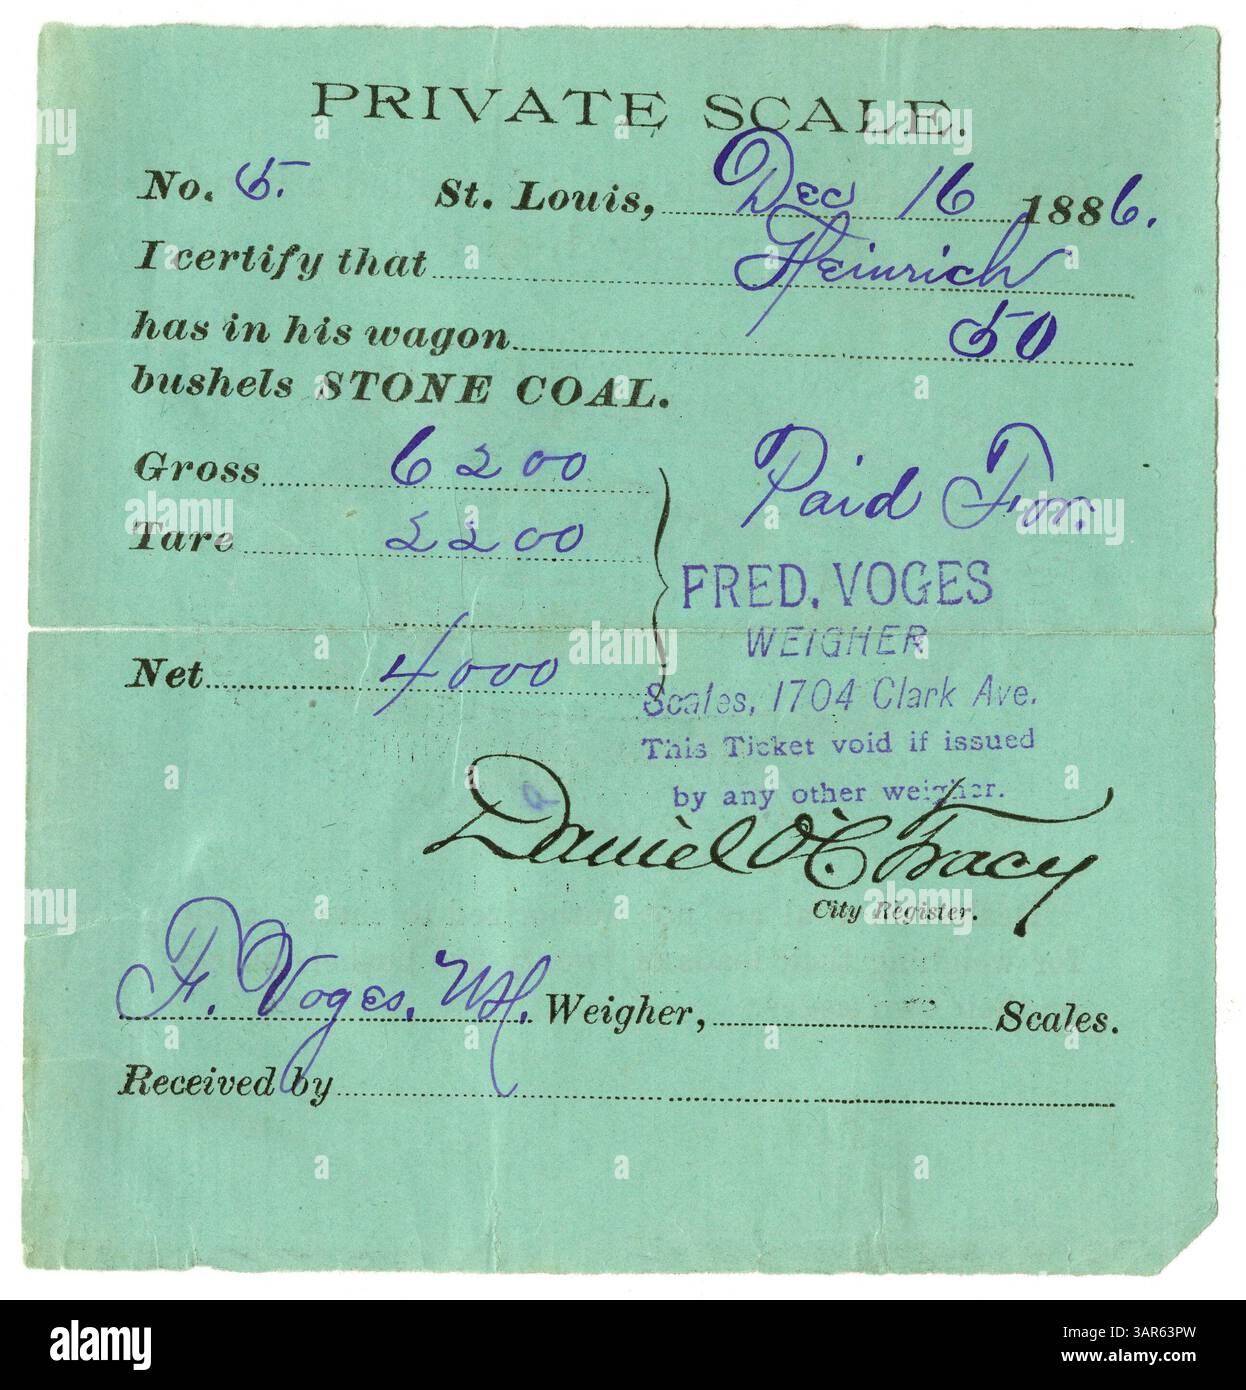 PRIVATE SCALE.
No. 5. St. Louis, Dec 16 1886.
I certify that Heinrich
has in his wagon 50
bushels STONE COAL.
Gross 6200
Tare 2200
Net 4000
Paid For.
FRED. VOGES
WEIGHER
Scales, 1704 Clark Ave.
This Ticket void if issued
by any other weigher.
Daniel O'C. Tracy
City Register.
F. Voges. Weigher, Scales.
Received by
alamy
Image ID: 3AR63PW
www.alamy.com